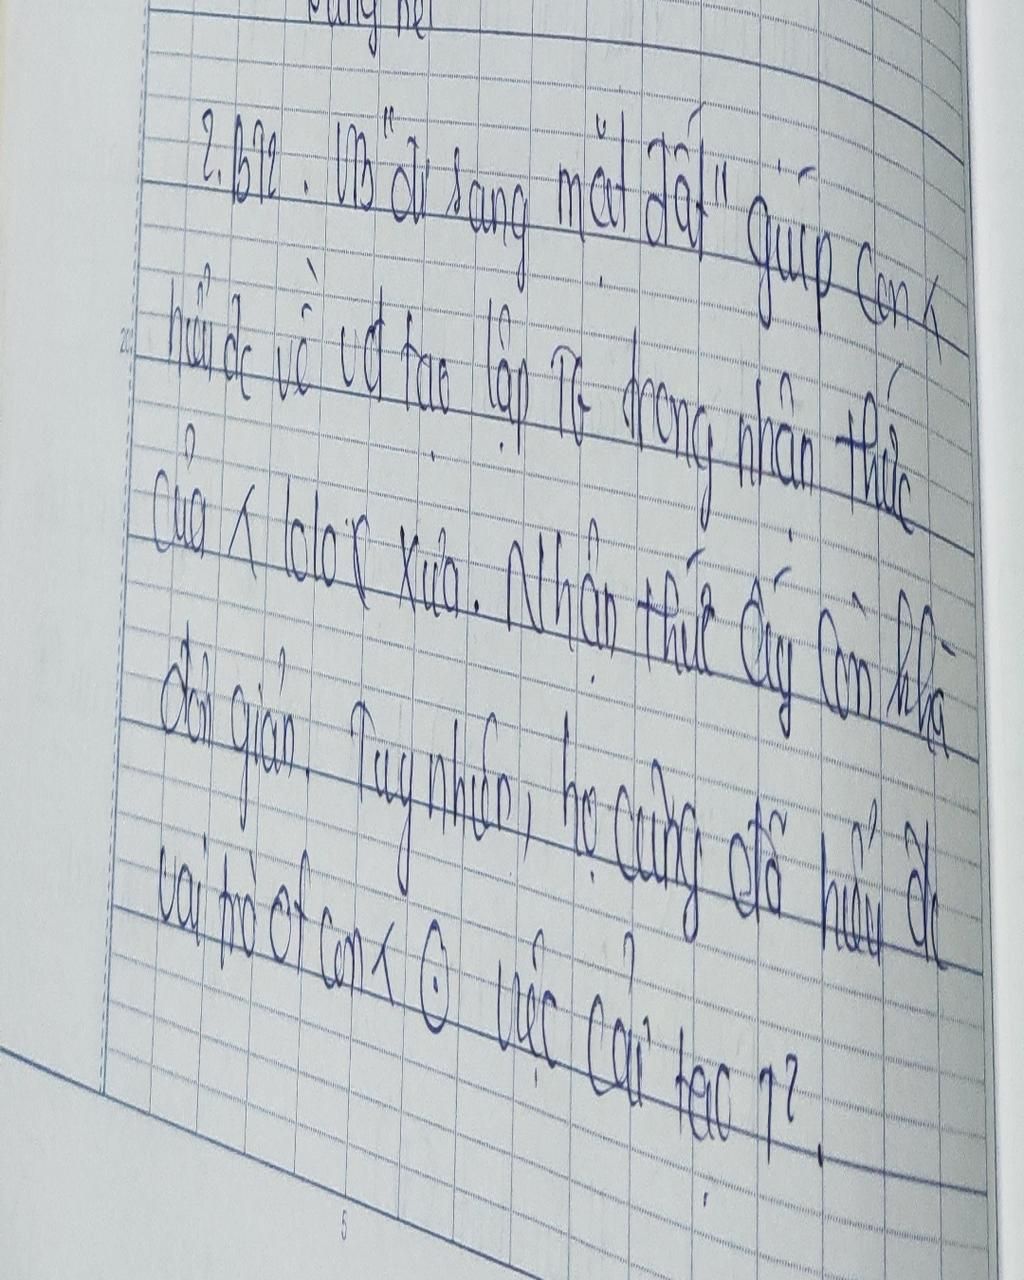 2. BT2. VB "đi sang mặt đất" giúp con <
hiểu đc về vđ tạo lập TG trong nhận thức
của < lolo xưa. Nhận thức ấy còn khá
đơn giản. Tuy nhiên, họ cũng đã hiểu đc
vai trò of con < ⊙ việc cải tạo